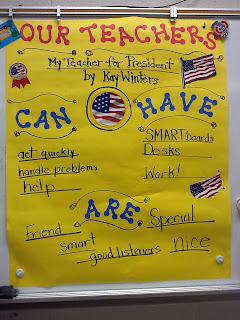 OUR TEACHERS
My Teacher for President
by Kay Winters
CAN HAVE
act quickly
handle problems
help
SMARTboards
Desks
Work!
ARE
Friend
smart
good listeners
Special
nice